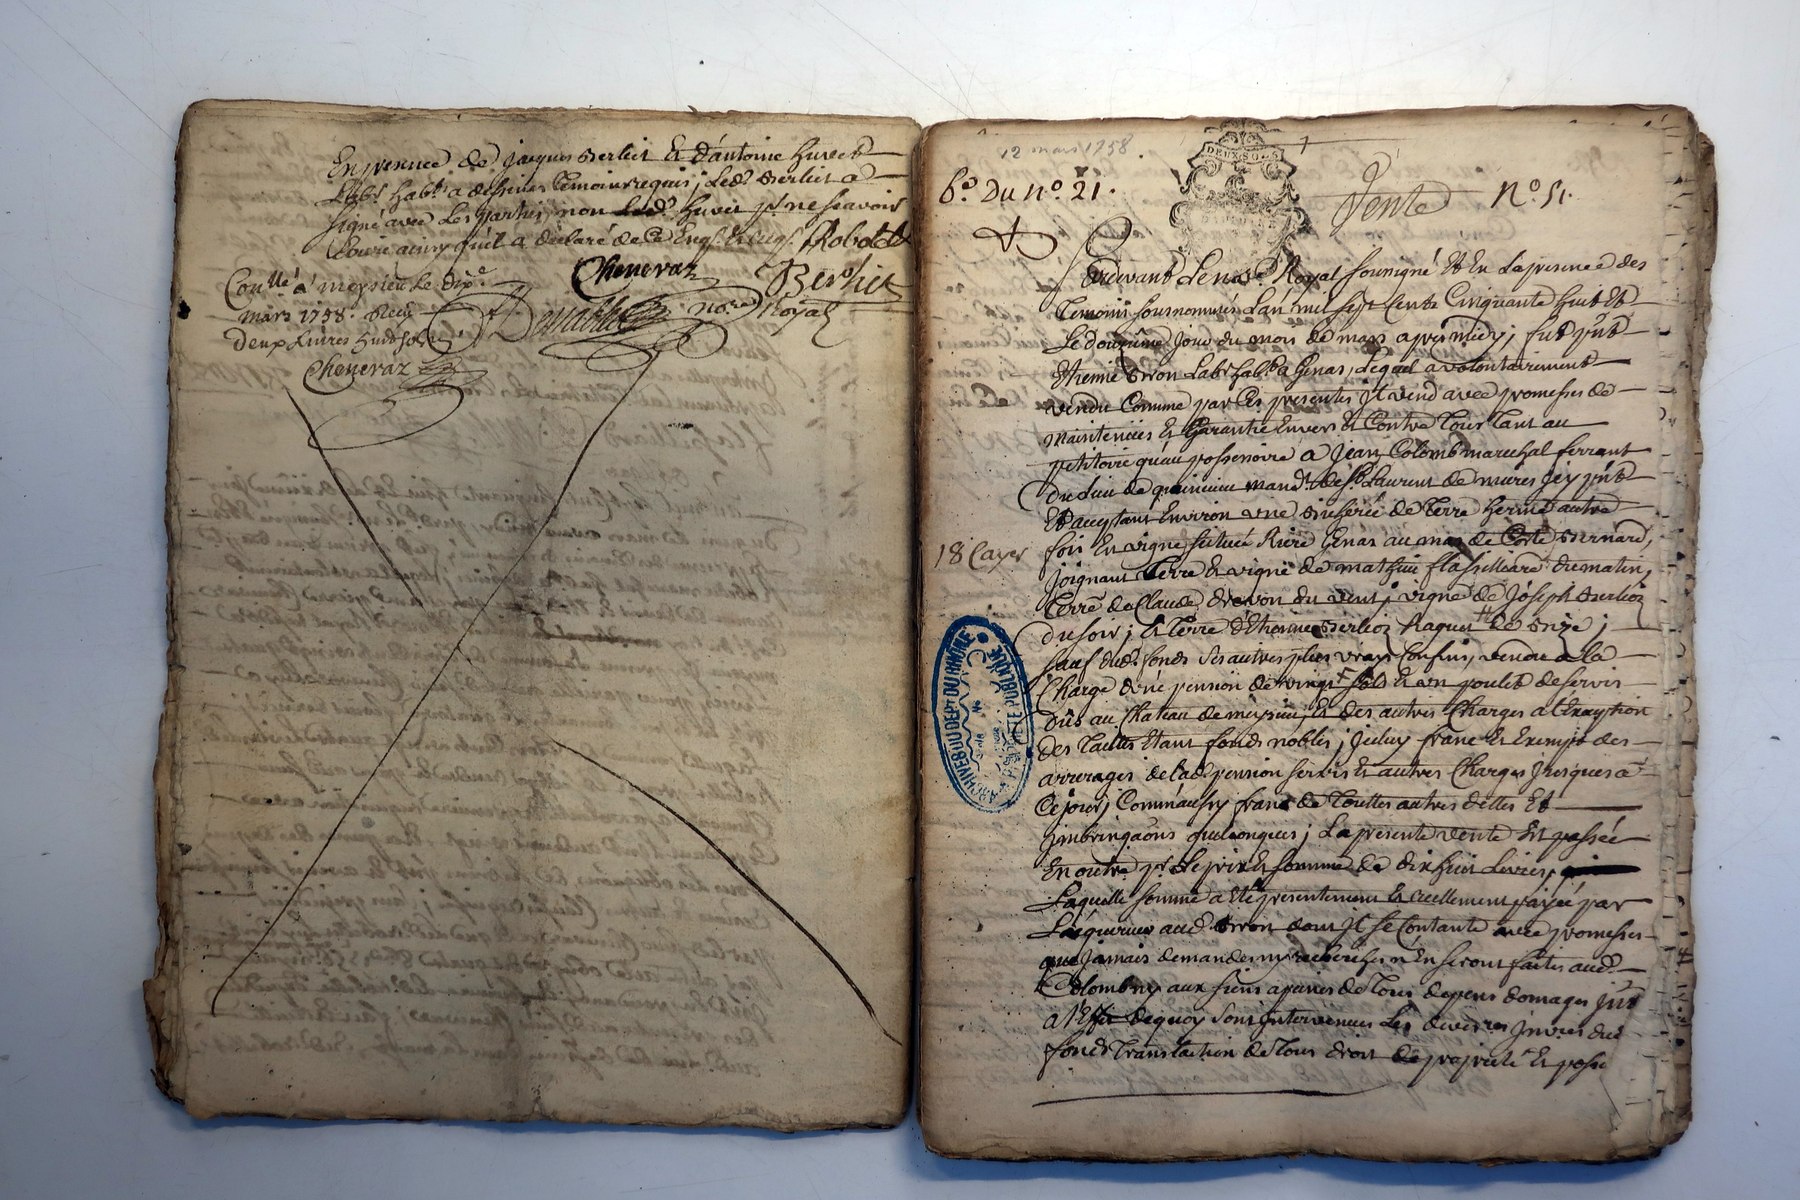 En presence de Jacques Berliet Et d'antoine huvet
Lab.rs hab.ts a dessines temoins requis; Led.t Berliet a
signé avec Les parties, non Led.t huvet p.r ne scavoir
Ecrire ainsy qu'il a declaré de ce Enq.s Et req.s Robat
Cheneraz Berliet
no.re Royal
Con.llé a meysieu Le dix.e
mars 1758. Reçu
deux Livres huit sols
Cheneraz
12 mars 1758
DEUX SOLS
6.o Du N.o 21.
Vente N.o 51.
Pardevant Le no.re Royal soussigné Et En La presence des
Temoins sousnommés L'an mil sept cents Cinquante huit Et
Le douzieme jour du mois de mars apres midy; fut p.nt
Etienne Drvon Lab.r hab.t a Genas, Lequel a volontairement
vendu Comme par Ces presentes Il vend avec promesses de
maintenües Et Garantie Envers Et Contre Tous Tant au
petitoire qu'au possessoire a Jean Colomb marechal ferrant
du Lieu de quincieu mand.t de S.t Laurent de mures Icy p.nt
Et acceptant Environ une Bicherée de Terre herme autre
18 Cayer
fois En vigne scituée Riere Genas au mas de Coste Bernard,
joignant Terre Et vigne de mathieu flassilliere du matin,
Terre de Claude Drevon du vent; vigne de Joseph Berlioz
du soir; Et Terre d'Etienne Berlioz Raquet de Bize;
sauf dud.t fonds Ses autres plus vrays Confins, vendu a la
Charge d'une pension de vingt sols Et un poulet de servis
dûs au Chateau de meysieu Et des autres Charges a l'Exception
des Tailles Etant fonds nobles; Iceluy franc Et Exempt des
arrerages de lad.e pension servis Et autres Charges Jusques a
Ce jour; Comm'aussy franc de Touttes autres dettes Et
jmbrinqaôns quelconques; La presente vente Est passée
En outre p.r Le prix Et somme de dix huit Livres,
Laquelle somme a Eté presentement Et reellement payée par
L'acquereur aud.t Drvon dont Il se Contante avec promesses
que Jamais demandes ny recherches n'En seront faites aud.t
Colomb ny aux siens a peines de Tous depens domages Int.s
a l'Effet dequoy Sont Intervenues Les devêtures Invest.res dud.
fonds Translation de Tous droit de proprieté Et posse
ARCHIVES DU DEPT DU RHONE